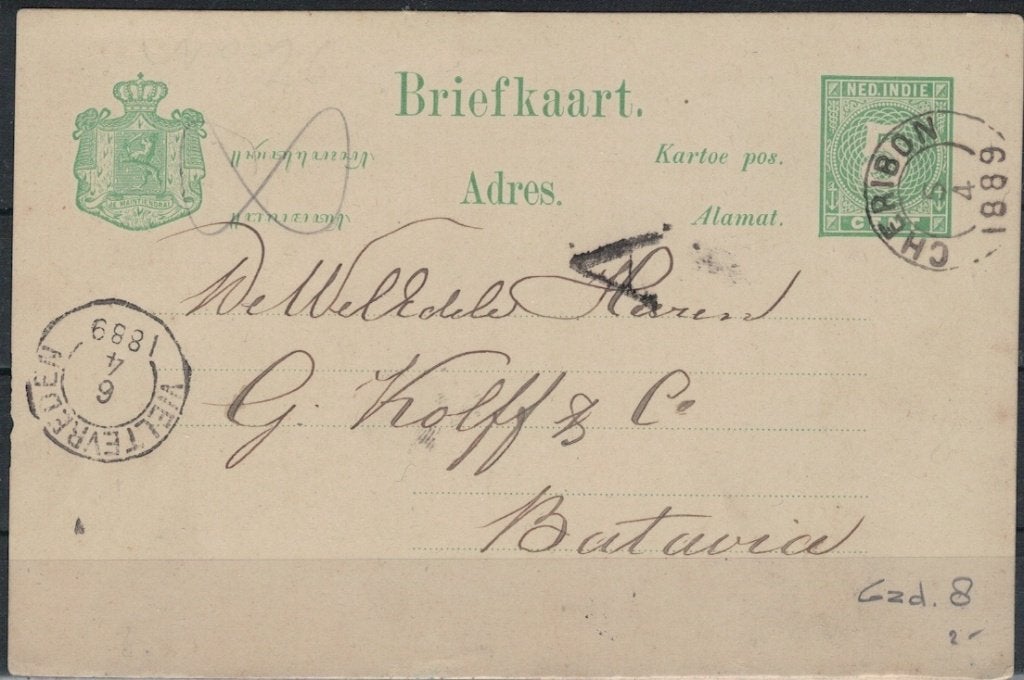 Briefkaart.
NED.INDIE
Kartoe pos.
Adres.
Alamat.
JE MAINTIENDRAI
5
CENT
CHERIBON
5
4
1889
De WelEdele Heeren
G. Kolff & Co
Batavia
WELTEVREDEN
6
4
1889
Gzd. 8
2-